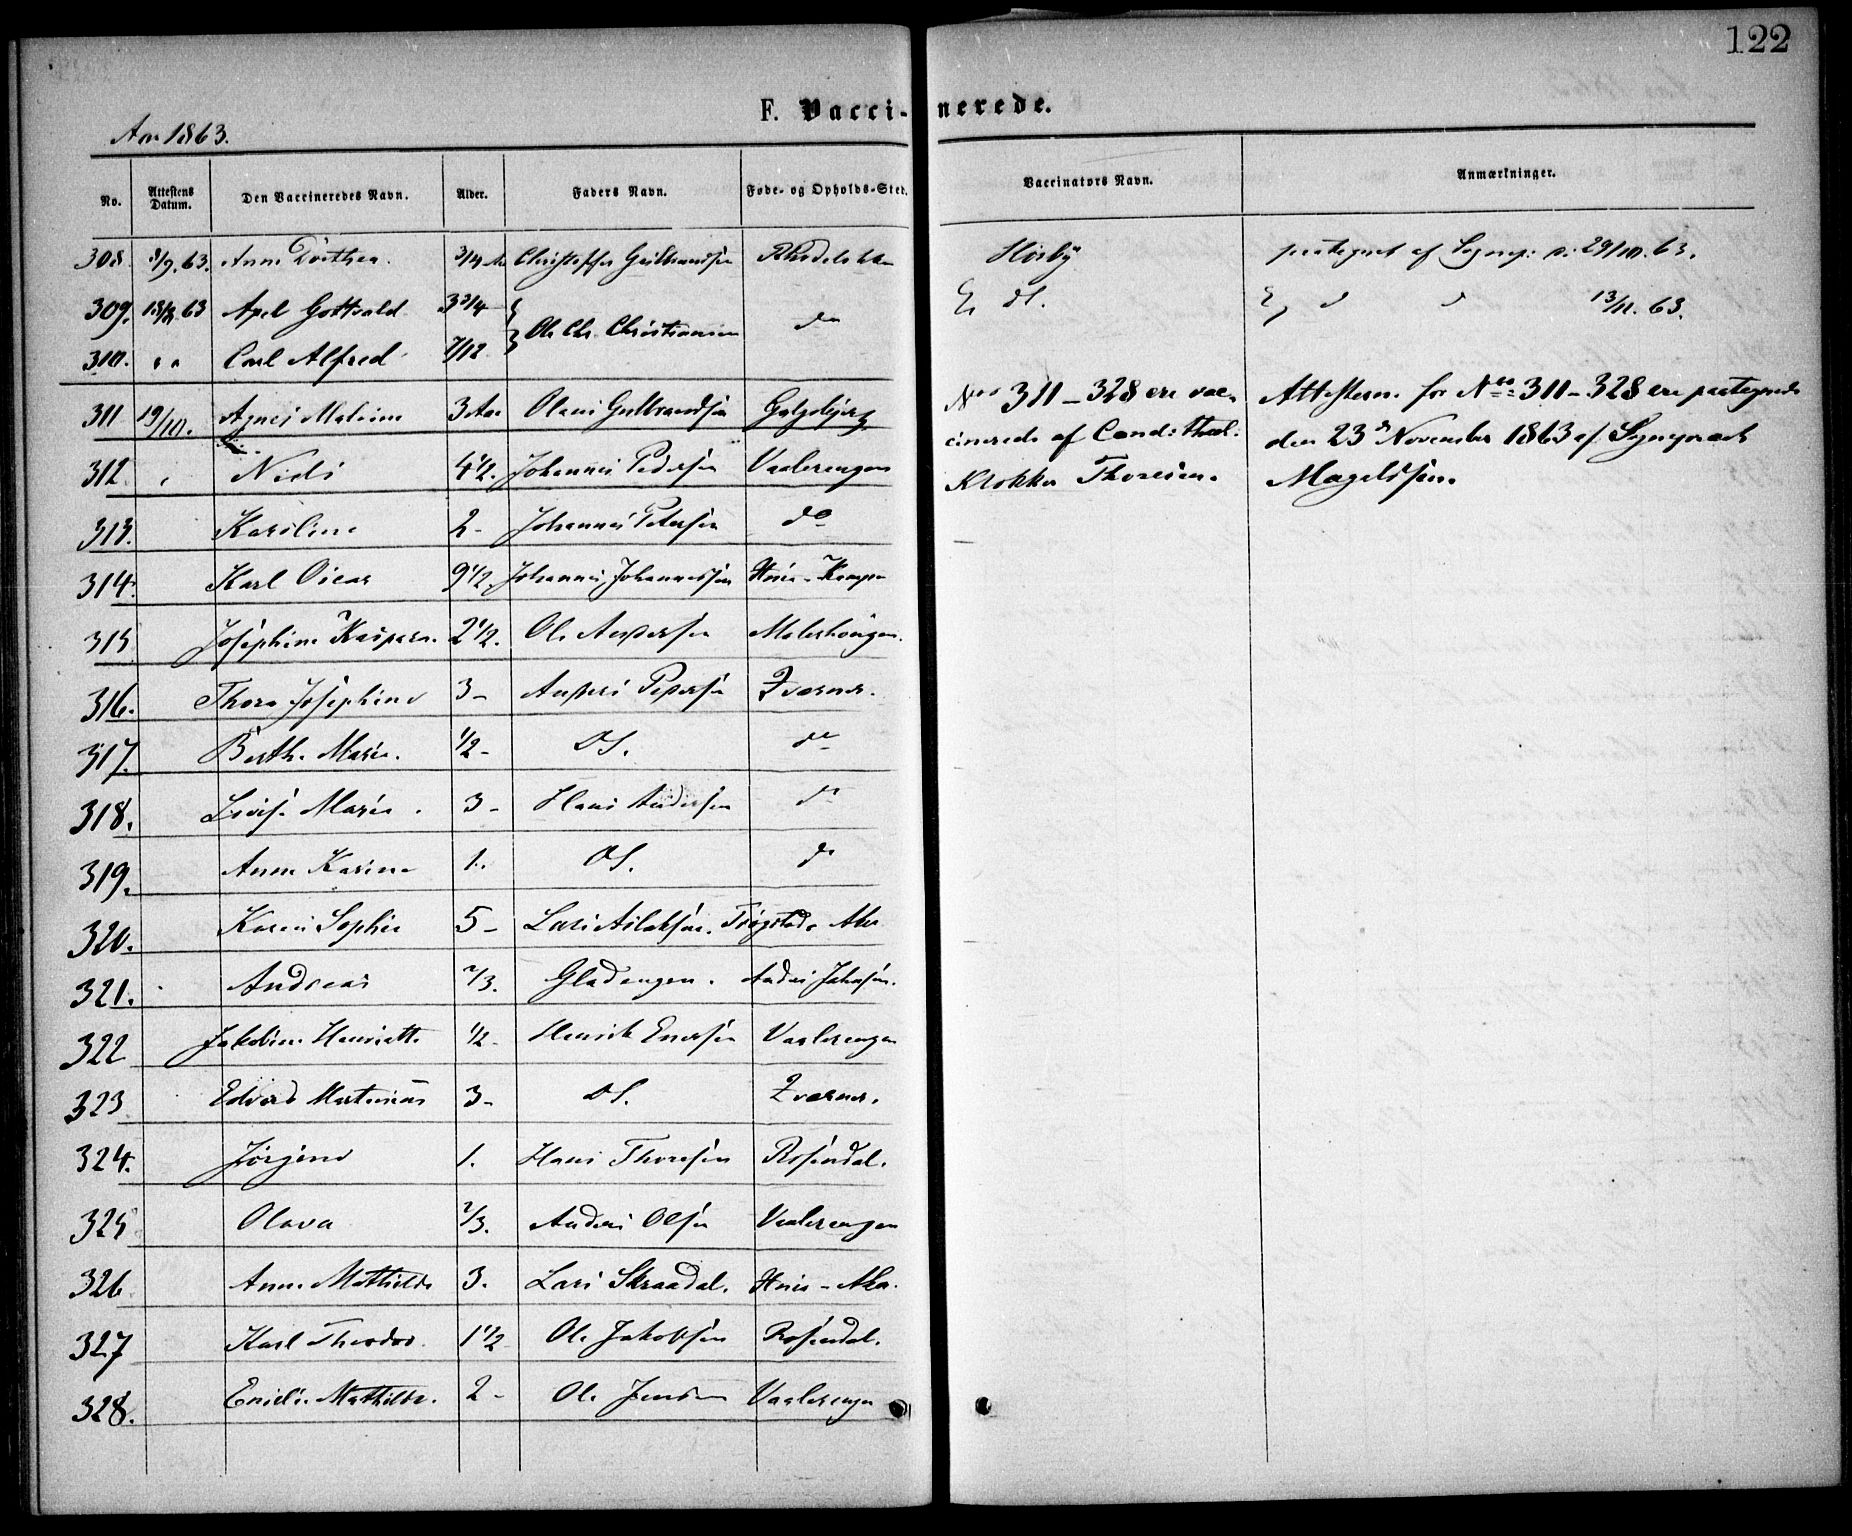 122
F. Vacci- nerede.
Aar 1863.
No. Attestens Datum. Den Vaccineredes Navn. Alder. Faders Navn. Føde- og Opholds-Sted. Vaccinators Navn. Anmærkninger.
308. 3/9. 63. Anne Dorthea. 3/4 Christoffer Gulbrandsen Høiby paategnet af Sognep: d. 29/10. 63.
309. 63 Axel Gottvald 3 3/4 Ole Chr. Christiansen do do. 13/11. 63.
310. " " Carl Alfred 7/12
311 19/10. Agnes Malvine 3 Aar Olaus Gulbrandsen Galgebjerg Nos 311-328 ere vac-
cinerede af Cand: theol:
Klokker Thoresen.
Attesterne for Nos 311-328 ere paategnede
den 23de November 1863 af Sognepræst
Magelssen.
312. " Niels 4 1/2. Johannes Pedersen Vaalerengen
313. Karoline 2 - Johannes Petersen do
314. Karl Oscar 9 1/2. Johannes Johannessen Kampen
315 Josephine Kaspara. 2 1/2. Ole Andersen Malerhaugen.
316. Thora Josephine 3 - Anders Pedersen Kværner.
317. Berthe Marie. 1/2 - DS. do
318. Lovise Marie. 3 - Hans Andersen do
319. Anne Karine 1. DS. do
320. Karen Sophie 5 - Lars Aslaksen. Aker
321. Andreas 2/3. Gladengen. Anders Johnsen.
322 Jakobine Henriette 1/2 - Henrik Enersen Vaalerengen
323 Edvard Martinius 3 - DS. Kværner.
324. Jørgine 1. Hans Thoresen Rosendal.
325 Olava 2/3. Anders Olsen Vaalerengen
326 Anne Mathilde 3. Lars Skraadal. Aker.
327 Karl Theodor. 1 1/2 Ole Jakobsen Rosendal.
328. Emilie Mathilde. 2 - Ole Jensen Vaalerengen